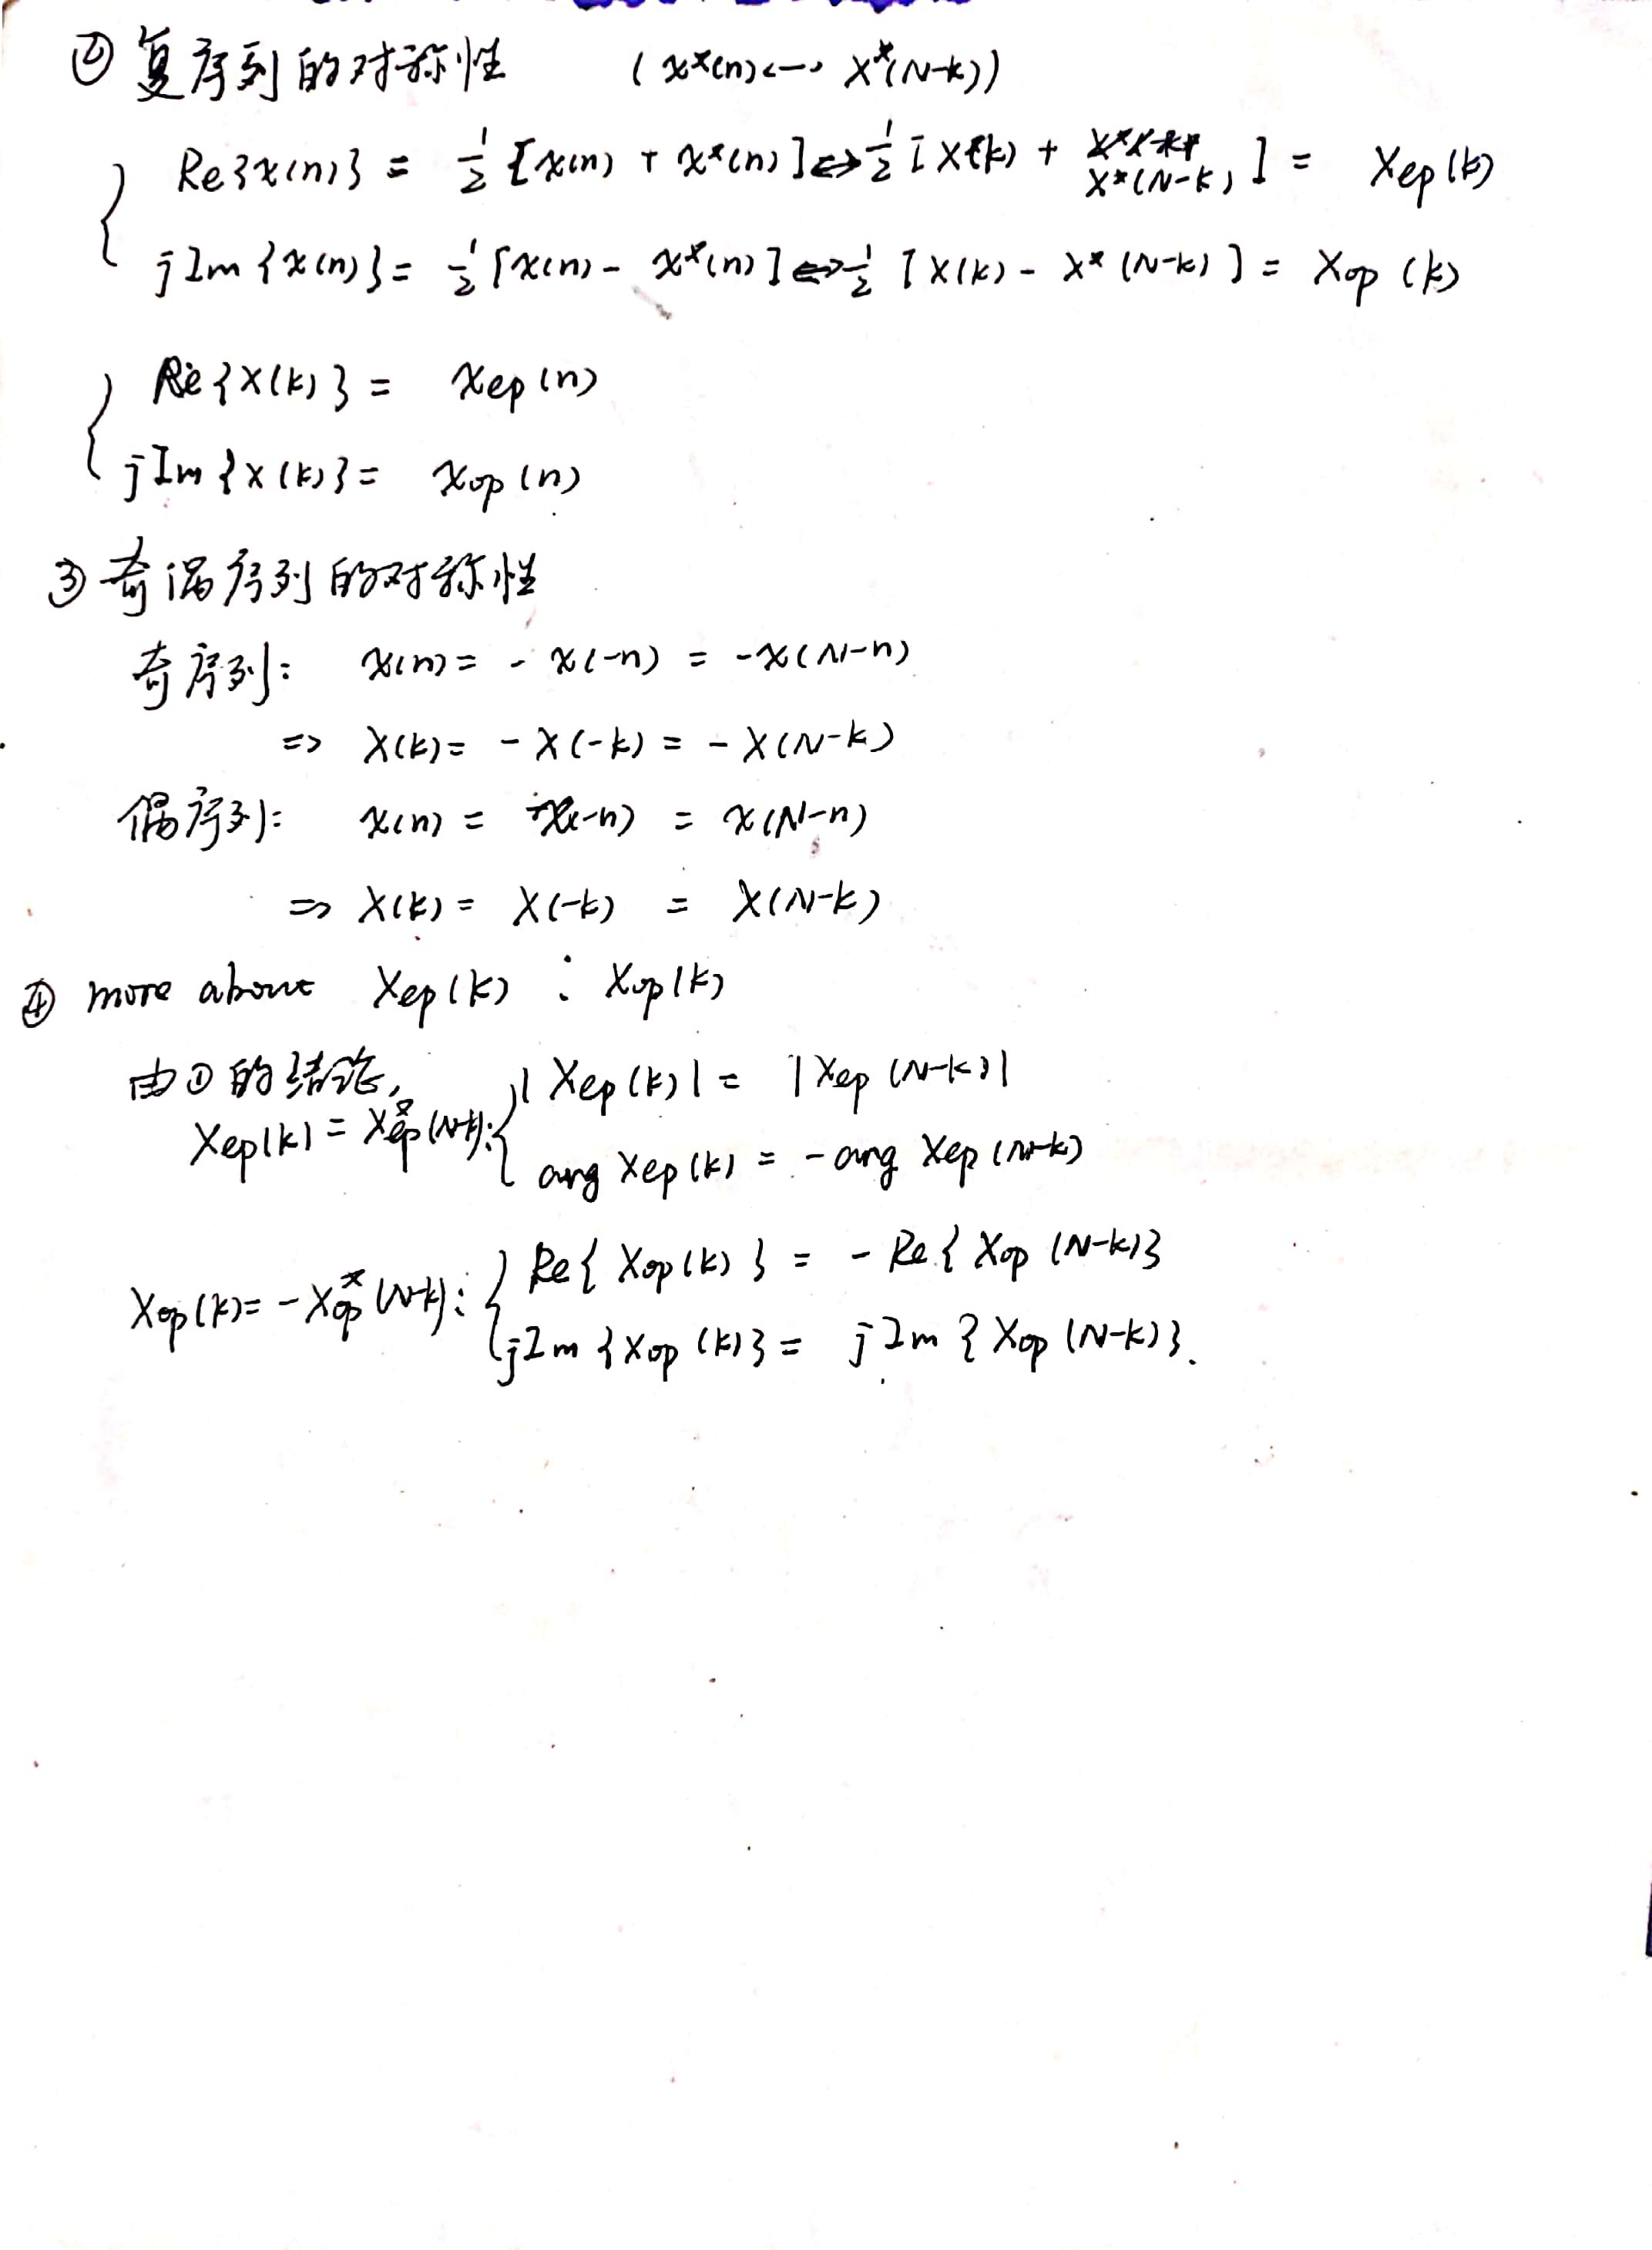 ② 复序列的对称性 (x*(n) <--> X*(N-k))
Re{x(n)} = 1/2 [x(n) + x*(n)] <=> 1/2 [X(k) + X*(N-k)] = Xep(k)
jIm{x(n)} = 1/2 [x(n) - x*(n)] <=> 1/2 [X(k) - X*(N-k)] = Xop(k)
Re{X(k)} = xep(n)
jIm{X(k)} = xop(n)
③ 奇偶序列的对称性
奇序列: x(n) = -x(-n) = -x(N-n)
=> X(k) = -X(-k) = -X(N-k)
偶序列: x(n) = x(-n) = x(N-n)
=> X(k) = X(-k) = X(N-k)
④ more about Xep(k) : Xop(k)
由①的结论,
|Xep(k)| = |Xep(N-k)|
Xep(k) = X*ep(N-k):
arg Xep(k) = -arg Xep(N-k)
Re{Xop(k)} = -Re{Xop(N-k)}
Xop(k) = -X*op(N-k):
jIm{Xop(k)} = jIm{Xop(N-k)}.